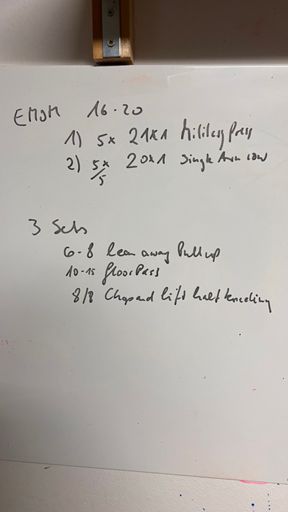 EMOM 16-20
1) 5x 21x1 Military Press
2) 5x/5 20x1 Single Arm row
3 Sets
6-8 lean away Pull up
10-15 floor Press
8/8 Chop and lift half kneeling